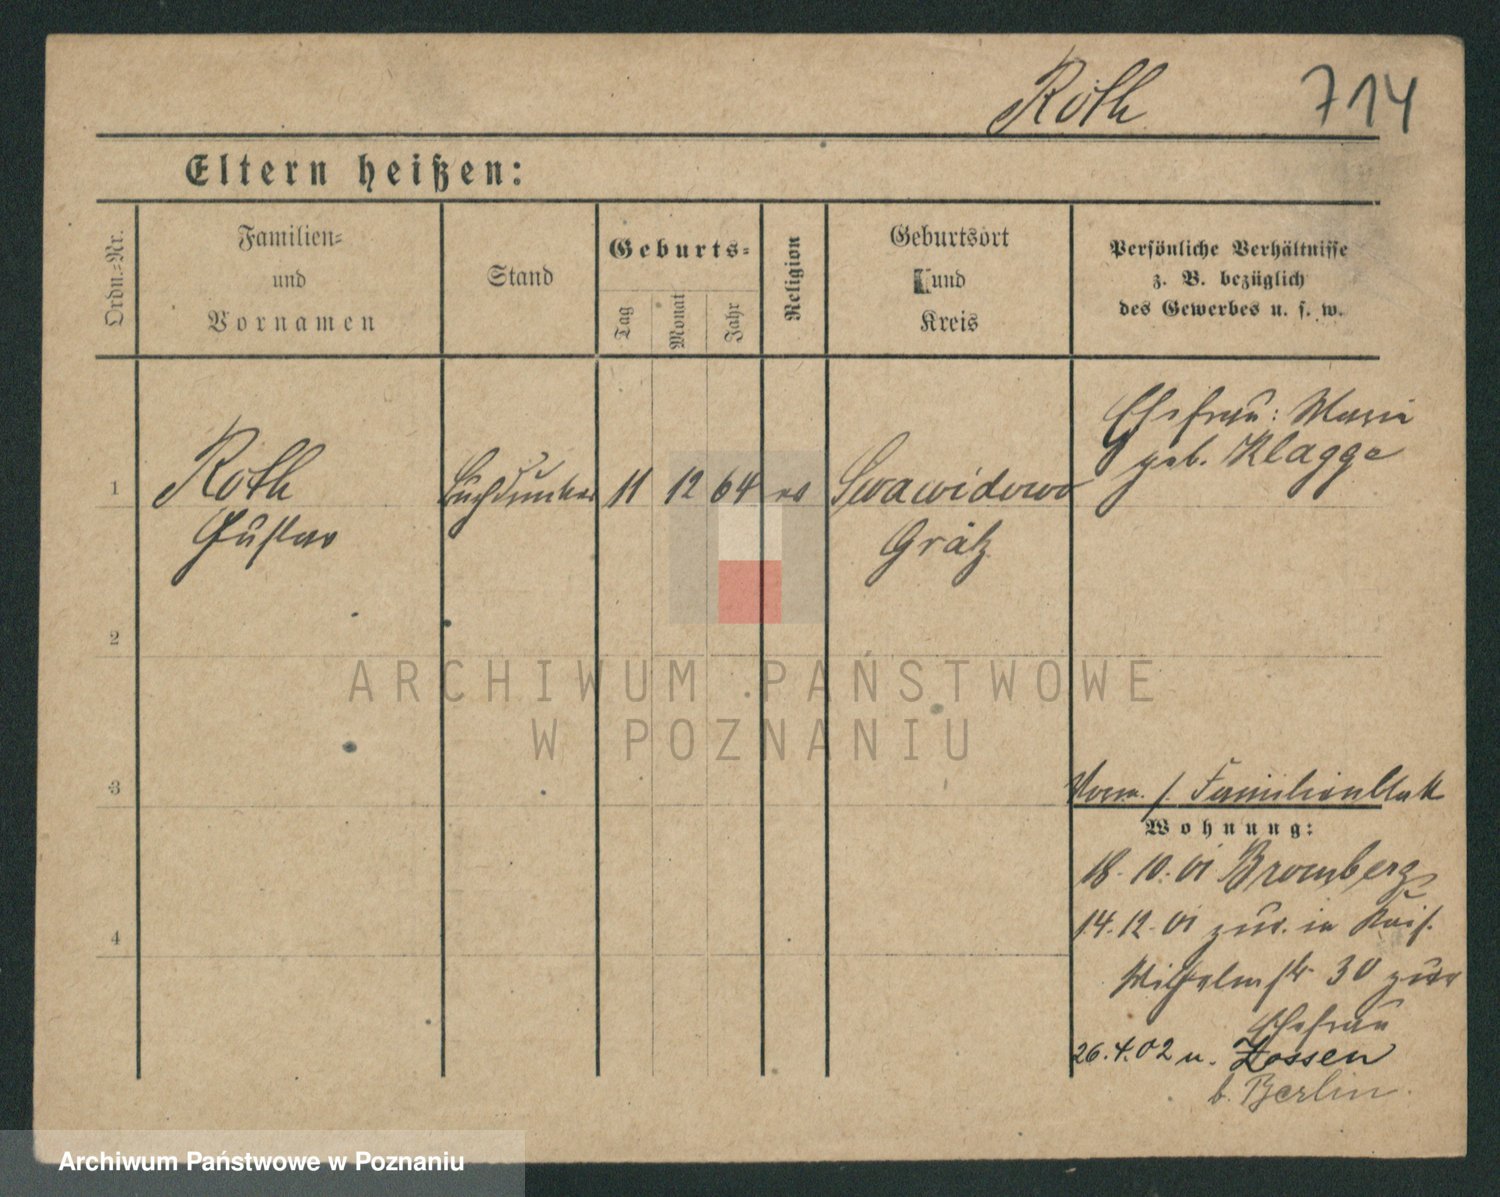 Roth 714
Eltern heißen:
Ordn.-Nr.
Familien-
und
Vornamen
Stand
Geburts-
Tag
Monat
Jahr
Religion
Geburtsort
und
Kreis
Persönliche Verhältnisse
z. B. bezüglich
des Gewerbes u. s. w.
Ehefrau: Marie
geb. Klagge
1 Roth 11 12 64 ev Swawidowo
Gustav Grätz
2
ARCHIWUM PAŃSTWOWE
W POZNANIU
3
Vorm. s. Familienblatt
Wohnung:
18.10.01 Bromberg
14.12.01 zur. in Kais.
4
Wilhelmstr. 30 zur
Ehefrau
26.4.02 n. Zossen
b. Berlin.
Archiwum Państwowe w Poznaniu